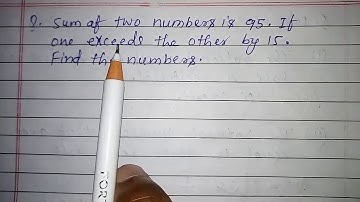 Q. Sum of two numbers is 95. If
one exceeds the other by 15.
Find the numbers.
TOR